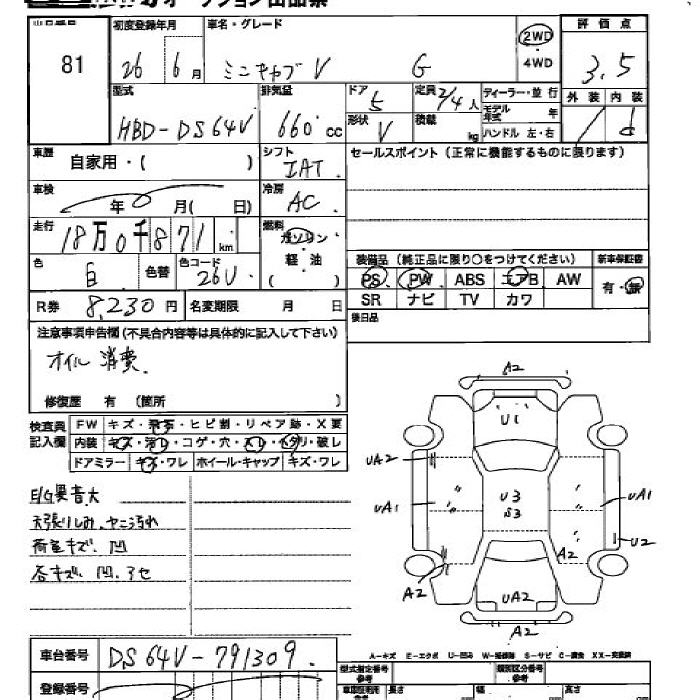 オークション出品票
出品番号 初度登録年月 車名・グレード 2WD 評価点
81 26年 6月 ミニキャブV G 4WD 3.5
型式 排気量 ドア 5 定員 2/4人 ディーラー・並行 外装 内装
HBD-DS64V 660cc 形状 V 積載 kg モデル年式 年 d
ハンドル 左・右
車歴 自家用・( ) シフト IAT セールスポイント (正常に機能するものに限ります)
車検 年 月( 日) 冷房 AC
走行 18万0千871km 燃料 ガソリン
軽油
( )
色 白 色替 色コード 26U 装備品 (純正品に限り○をつけてください) 新車保証書
PS PW ABS エアB AW 有・無
SR ナビ TV カワ
R券 8,230円 名変期限 月 日 後日品
注意事項申告欄 (不具合内容等は具体的に記入して下さい)
オイル消費.
修復歴 有 (箇所 )
検査員記入欄 FW キズ・飛石・ヒビ割・リペア跡・X要
内装 キズ・汚レ・コゲ・穴・スレ・ヘタリ・破レ
ドアミラー キズ・ワレ ホイール・キャップ キズ・ワレ
E/G異音大
天張りしみ.ヤニ汚れ
荷室キズ.凹
各キズ.凹.アセ
A2
U1
UA2
UA1
U3
S3
UA1
U2
A2
A2
UA2
A2
車台番号 DS64V-791309.
登録番号
A-キズ E-エクボ U-凹み W-補修跡 S-サビ C-腐食 XX-交換済
型式指定番号 参考 類別区分番号 参考
長さ 幅 高さ